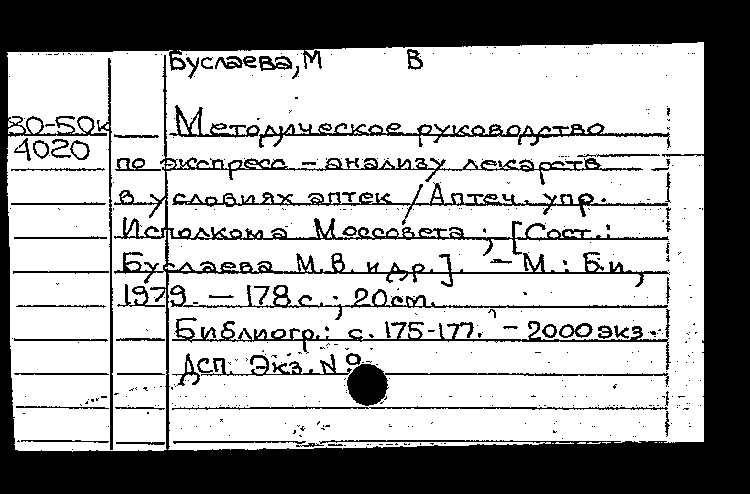 Буслаева, М В
80-50к
4020
Методическое руководство
по экспресс - анализу лекарств
в условиях аптек / Аптеч. упр.
Исполкома Моссовета ; [Сост.:
Буслаева М.В. и др.]. - М.: Б.и.,
1979. - 178 с. ; 20 см.
Библиогр.: с. 175-177. - 2000 экз.
ДСП. Экз. N 9